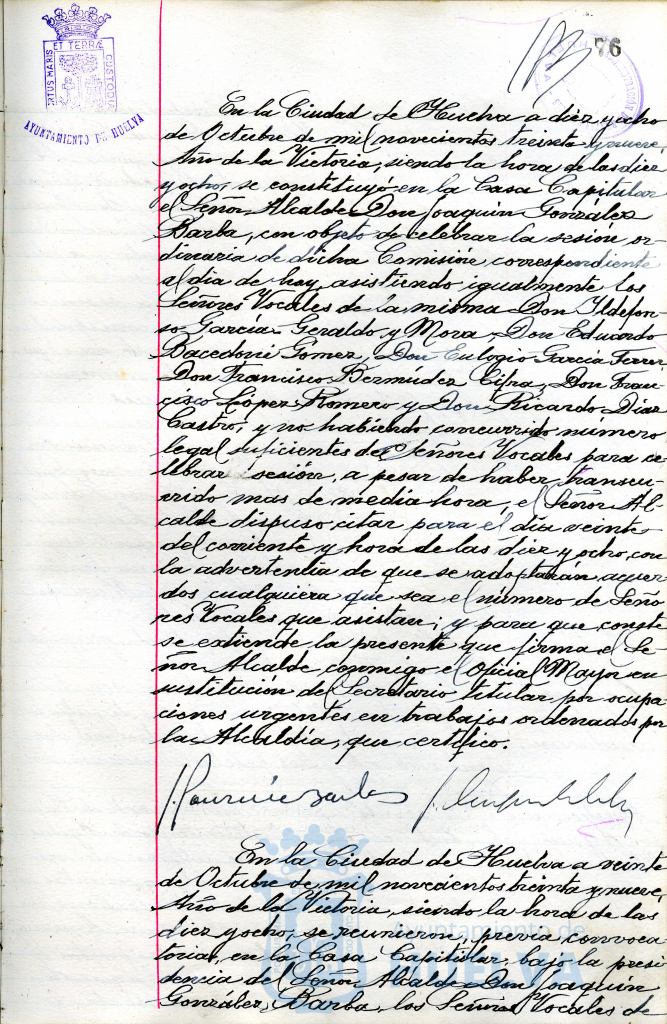 ET TERRÆ
CUSTODIA
AYUNTAMIENTO DE HUELVA
76
En la Ciudad de Huelva a diez y ocho
de Octubre de mil novecientos treinta y nueve,
Año de la Victoria, siendo la hora de las diez
y ocho, se constituyó en la Casa Capitular
el Señor Alcalde Don Joaquín González
Barba, con objeto de celebrar la sesión or-
dinaria de dicha Comisión, correspondiente
al dia de hoy, asistiendo igualmente los
Señores Vocales de la misma Don Ildefon-
so García-Geraldo y Mora, Don Eduardo
Bacedoni Gómez, Don Eulogio García Ferrer,
Don Francisco Bermúdez Cifra, Don Fran-
cisco López Romero y Don Ricardo Díaz
Castro, y no habiendo concurrido número
legal suficientes de Señores Vocales para ce-
lebrar sesión, a pesar de haber transcu-
rrido mas de media hora, el Señor Al-
calde dispuso citar para el día veinte
del corriente y hora de las diez y ocho, con
la advertencia de que se adoptarán acuer-
dos cualquiera que sea el número de Seño-
res Vocales que asistan; y para que conste
se extiende la presente que firma el Se-
ñor Alcalde conmigo el Oficial Mayor en
sustitución del Secretario titular por ocupa
ciones urgentes en trabajos ordenados por
la Alcaldía, que certifico.
En la Ciudad de Huelva a veinte
de Octubre de mil novecientos treinta y nueve,
Año de la Victoria, siendo la hora de las
diez y ocho, se reunieron, previa convoca
toria, en la Casa Capitular, bajo la presi
dencia del Señor Alcalde Don Joaquín
González Barba, los Señores Vocales de
Ayuntamiento de
HUELVA